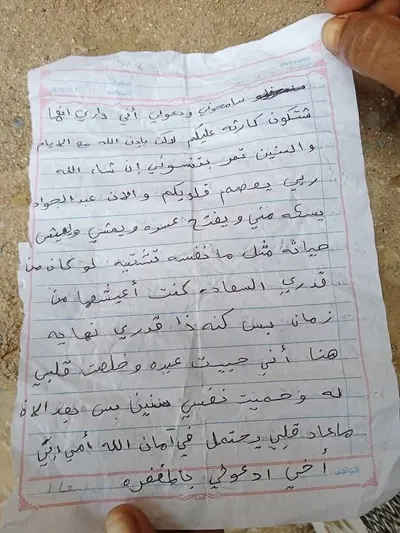 سامحوني ودعولي أني داري انها
شتكون كارثه عليكم لاكن باذن الله مع الايام
والسنين تمر بتنسوني إن شاء الله
ربي يعصم قلوبكم والان عبدالجواد
يسكه مني ويفتح عبده ويمشي ويعيش
حياته مثل ما نفسه تشتيه لو كان من
قدري السعاده كنت أعيشها من
زمان بس كنه ذا قدري نهايه
هنا أني حبيت عبده وخلصت قلبي
له وحميت نفسي سنين بس بعد الان
ماعاد قلبي يحتمل في أمان الله أمي أبي
أخي ادعولي بالمغفره
الواجب